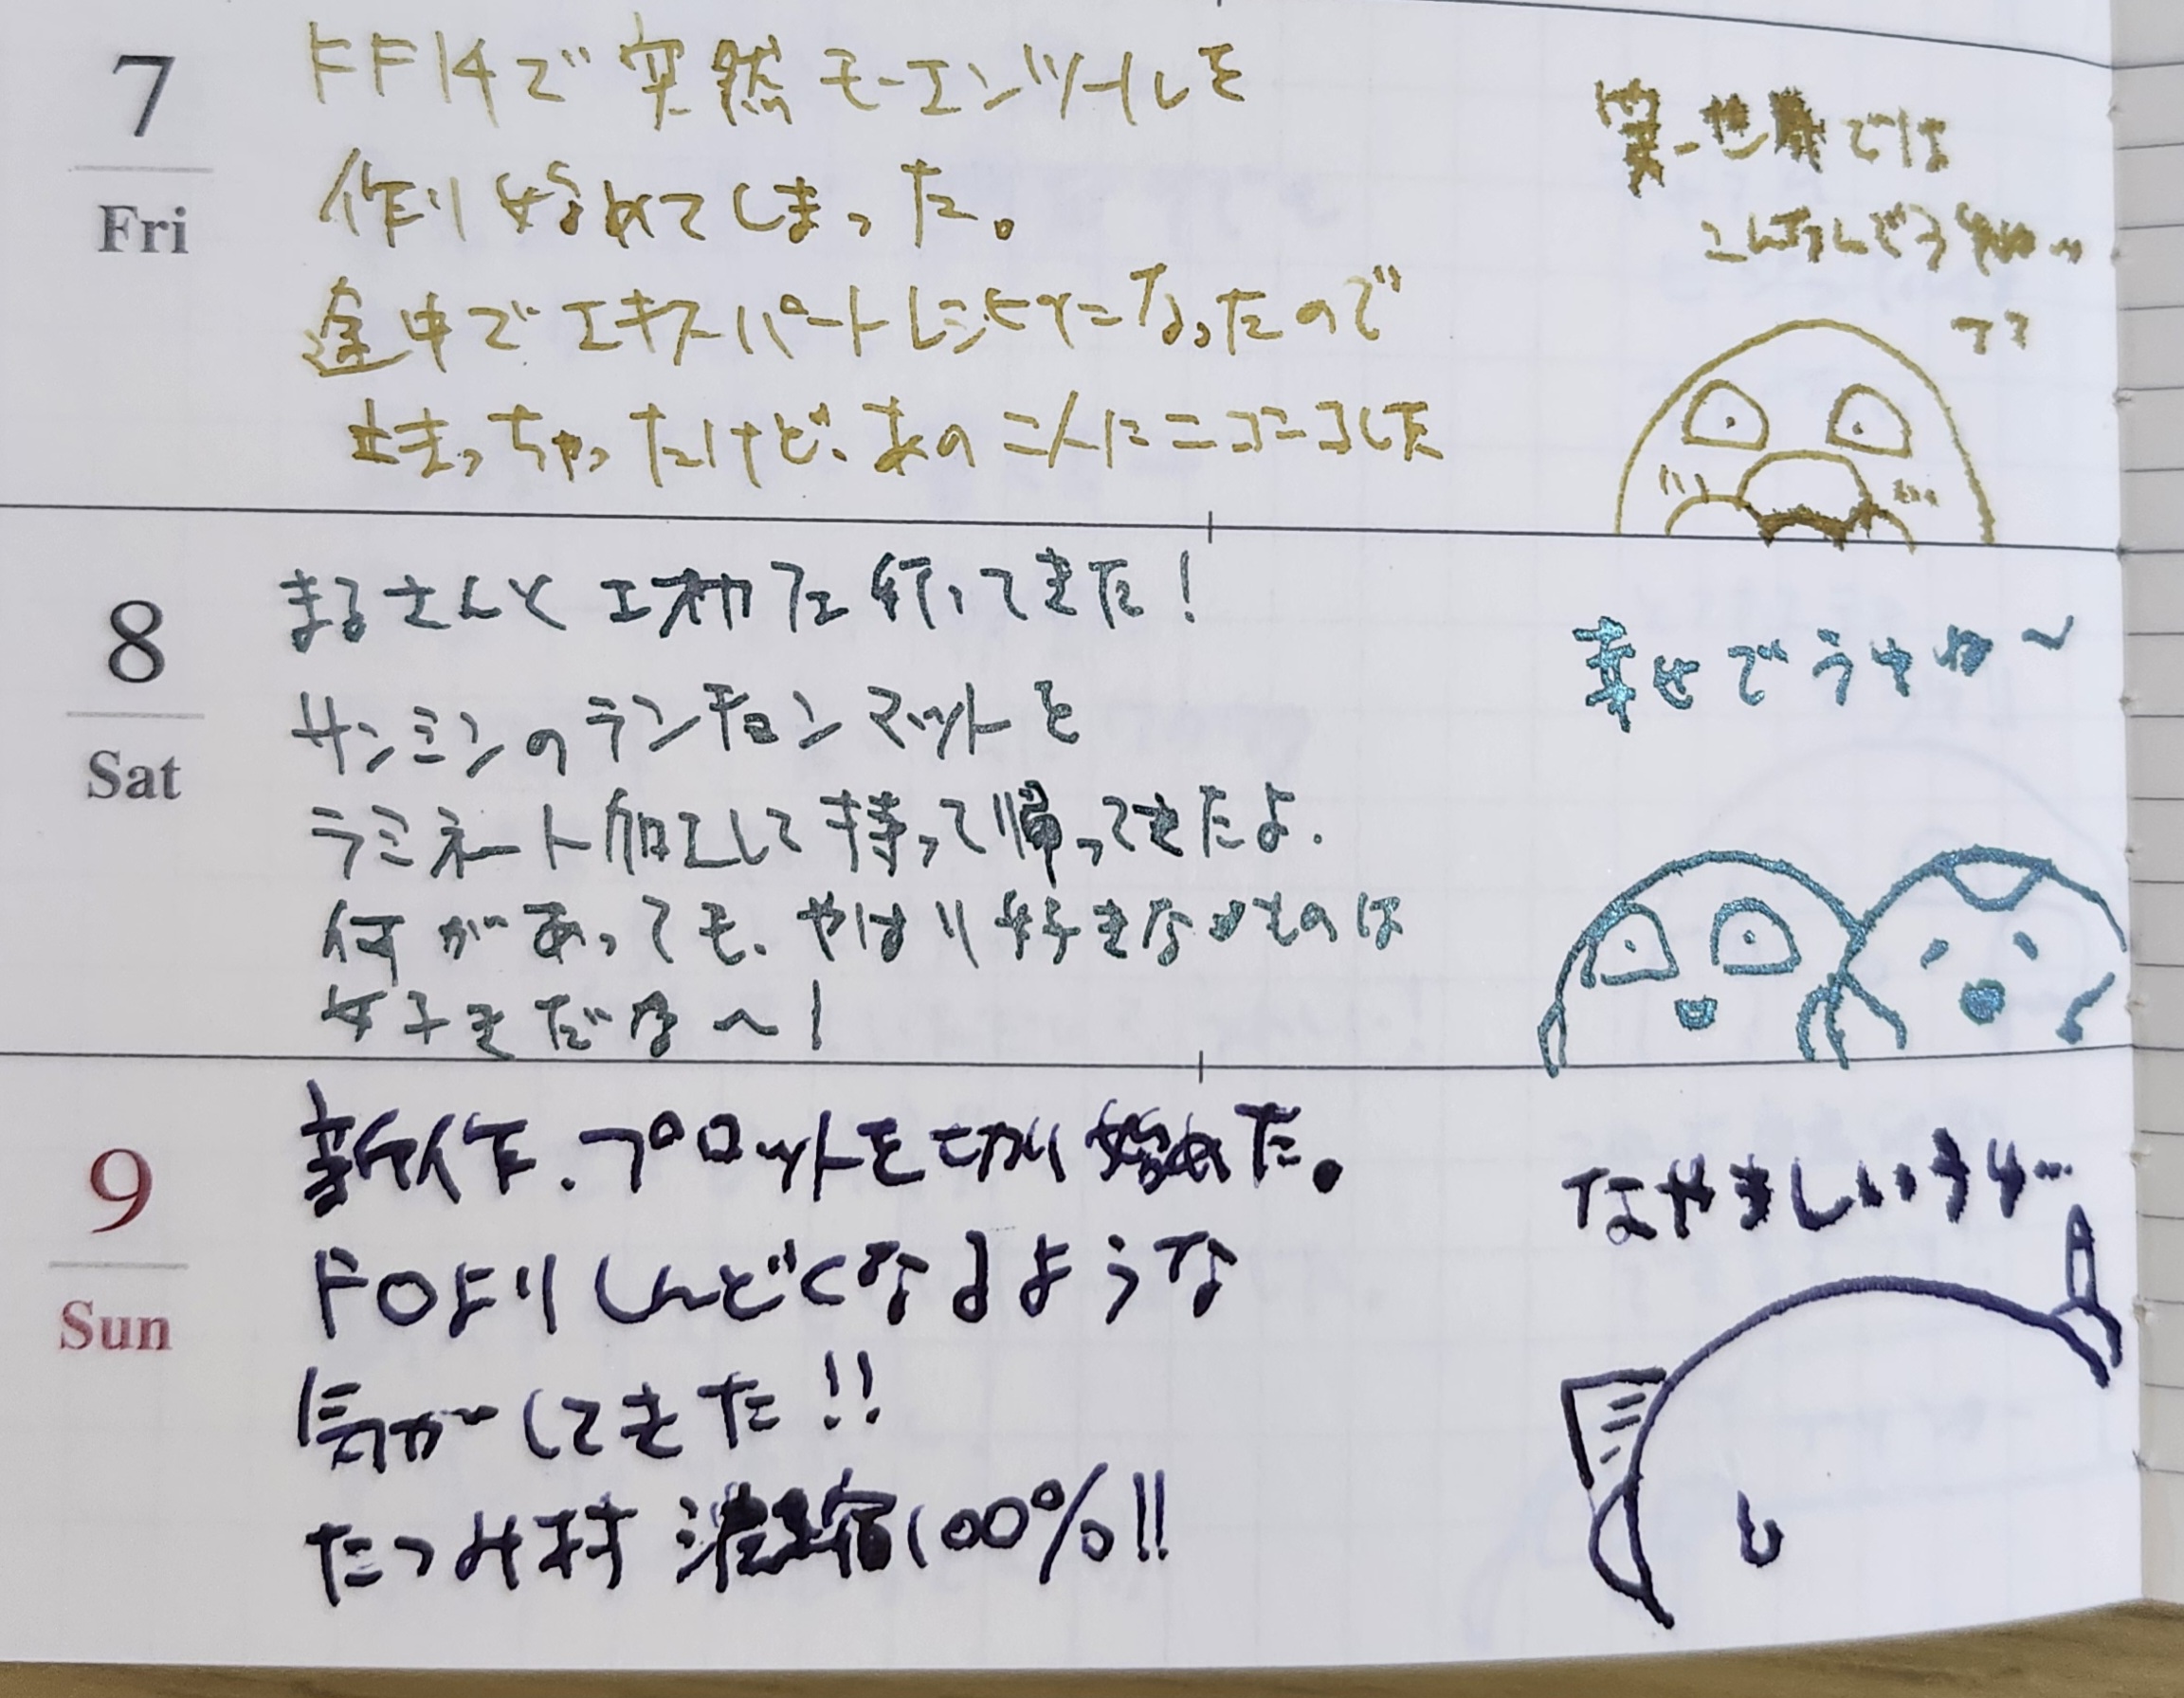 7
Fri
FF14で突然モーエンツールを
作り始めてしまった。
途中でエキスパートレシピになったので
止まっちゃったけど、あの
ニコニコした
異世界では
こんな
??
8
Sat
まるさんと
行ってきた!
サンミンのランチョンマットを
ラミネート加工して持って帰ってきたよ.
何があっても、やはり好きなものは
好きだな〜!
幸せでうすね〜
9
Sun
新作、プロットを切り始めた。
ドロよりしんどくなるような
気がしてきた!!
たつみ村 濃縮100%!!
なやましいうす…